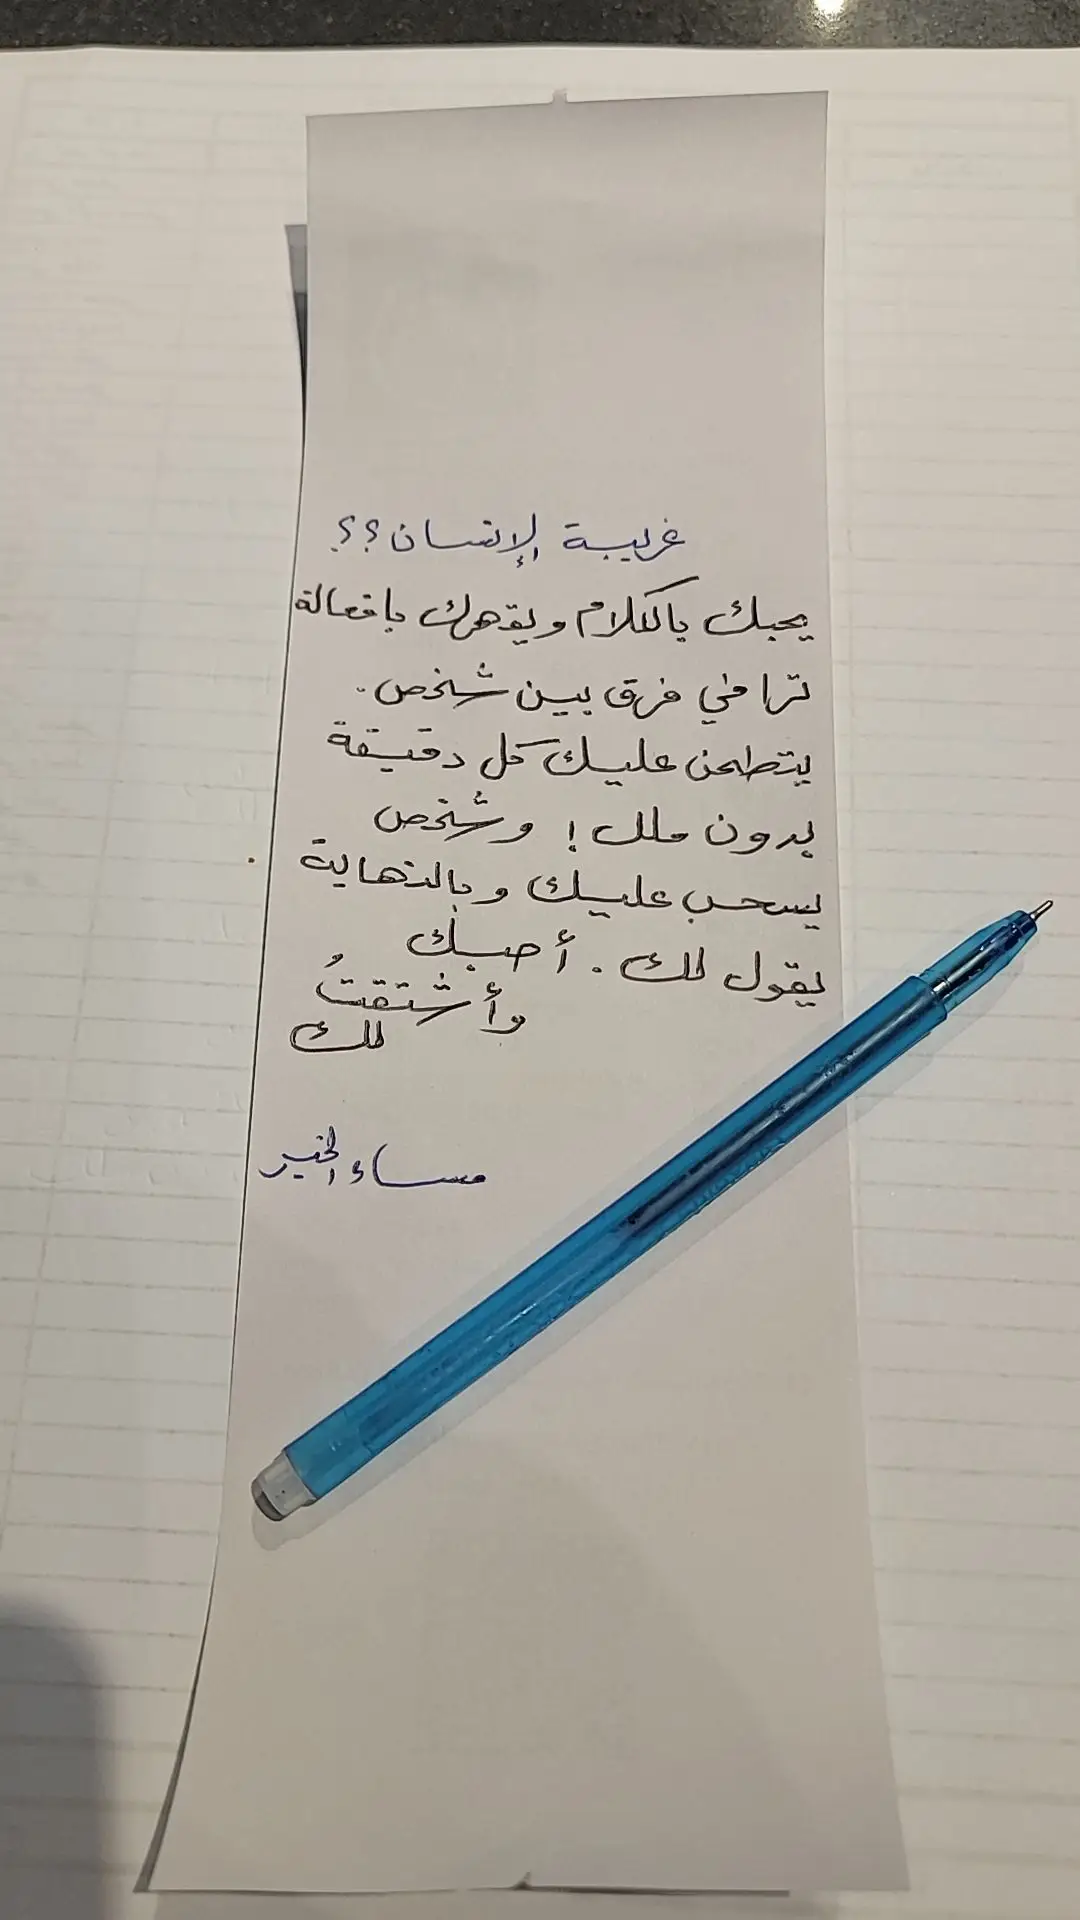 غريبة الإنسان؟؟
يحبك بالكلام ويقهرك بافعالة
ترا في فرق بين شخص.
يتطمن عليك كل دقيقة
بدون ملل! وشخص
يسحب عليك وبالنهاية
يقول لك. أحبك
وأشتقتُ
لك
مساء الخير